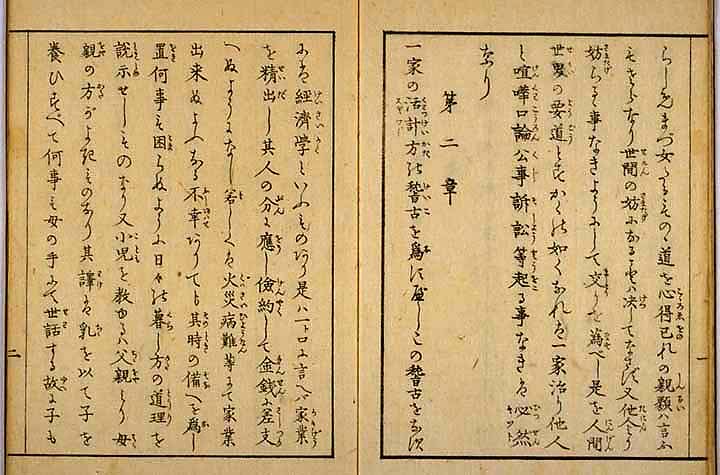 らし先まづ女たるものゝ道を心得己れの親類ハ言ふ
もさらなり世間の妨になることハ決してなさず又他人より
妨らるゝ事なきようにして交りを為べし是を人間
世界の要道と云かくの如くなれバ一家治り他人
と喧嘩口論公事訴訟等起る事なきハ必然
なり
第二章
一家の活計方の稽古を為すべしこの稽古をなす
一
にハ経済学といふものあり是ハ一ト口に言へバ家業
を精出し其人の分に應じ倹約して金銭に差支
へぬようになし若しくハ火災病難等にて家業
出来ぬようなる不幸ありても其時の備へを為し
置何事も困らぬように日々の暮し方の道理を
説示せしものなり又小児を教ゆるハ父親より母
親の方がよきものなり其譯ハ乳を以て子を
養ひすべて何事も母の手にて世話する故に子も
二